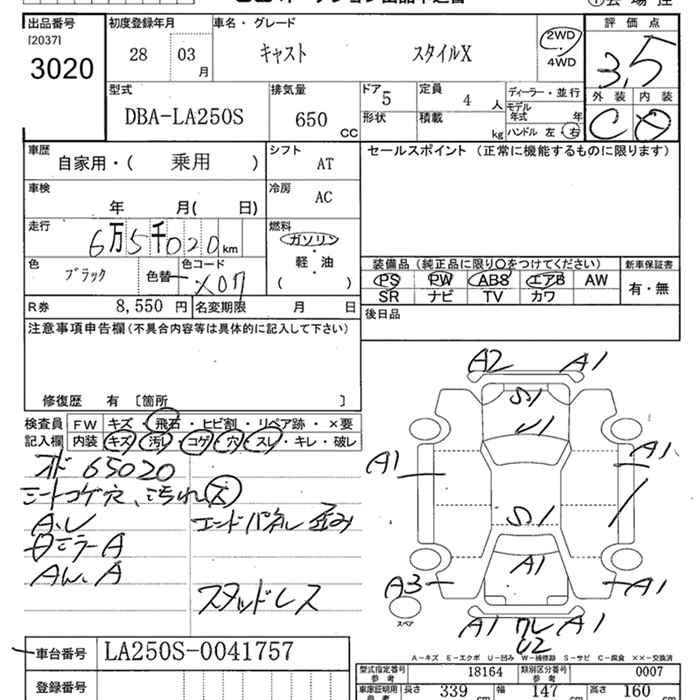 出品番号 初度登録年月 車名・グレード 評価点
[2037]
3020 28 03 月 キャスト スタイルX 2WD ・ 4WD 3.5
外装 内装
型式 排気量 ドア 5 定員 4 人 ディーラー・並行
DBA-LA250S 650 CC 形状 積載 kg モデル年式 年
ハンドル 左・右 C D
車歴 シフト セールスポイント (正常に機能するものに限ります)
自家用・( 乗用 ) AT
車検 冷房
年 月( 日) AC
走行 燃料
6万5千020km ガソリン
軽・油
( )
色 ブラック 色替 色コード X07
装備品 (純正品に限り○をつけてください) 新車保証書
PS PW ABS エアB AW 有・無
SR ナビ TV カワ
R券 8,550 円 名変期限 月 日 後日品
注意事項申告欄 (不具合内容等は具体的に記入して下さい)
修復歴 有 [箇所 ]
検査員 FW キズ・飛石・ヒビ割・リペア跡・×要
記入欄 内装 キズ・汚レ・コゲ・穴・スレ・キレ・破レ
65020
シートコゲ穴、汚れ
エンドパネル 歪み
ミラーA
AW、A
スタッドレス
A2 A1
S1
U1
A1 A1
S1
A1
A3 A1
スペア
A1 ワレ A1
U2
A-キズ E-エクボ U-凹み W-補修跡 S-サビ C-腐食 ××-交換済
車台番号 LA250S-0041757
型式指定番号 参考 18164 類別区分番号 参考 0007
登録番号
車庫証明用 参考 長さ 339 cm 幅 147 cm 高さ 160 cm